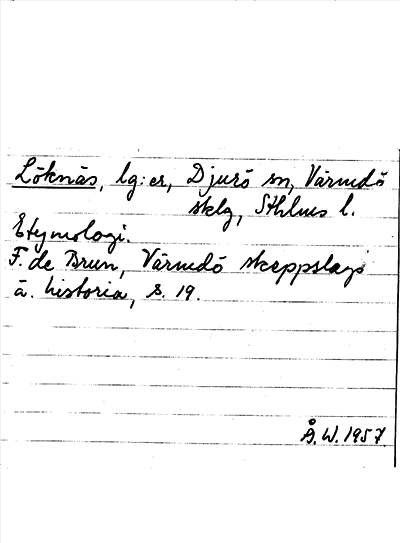 Löknäs, lg:er, Djurö sn, Värmdö
sklg, Sthlms l.
Etymologi.
F. de Brun, Värmdö skeppslags
ä. historia, s. 19.
Å.W. 1957.